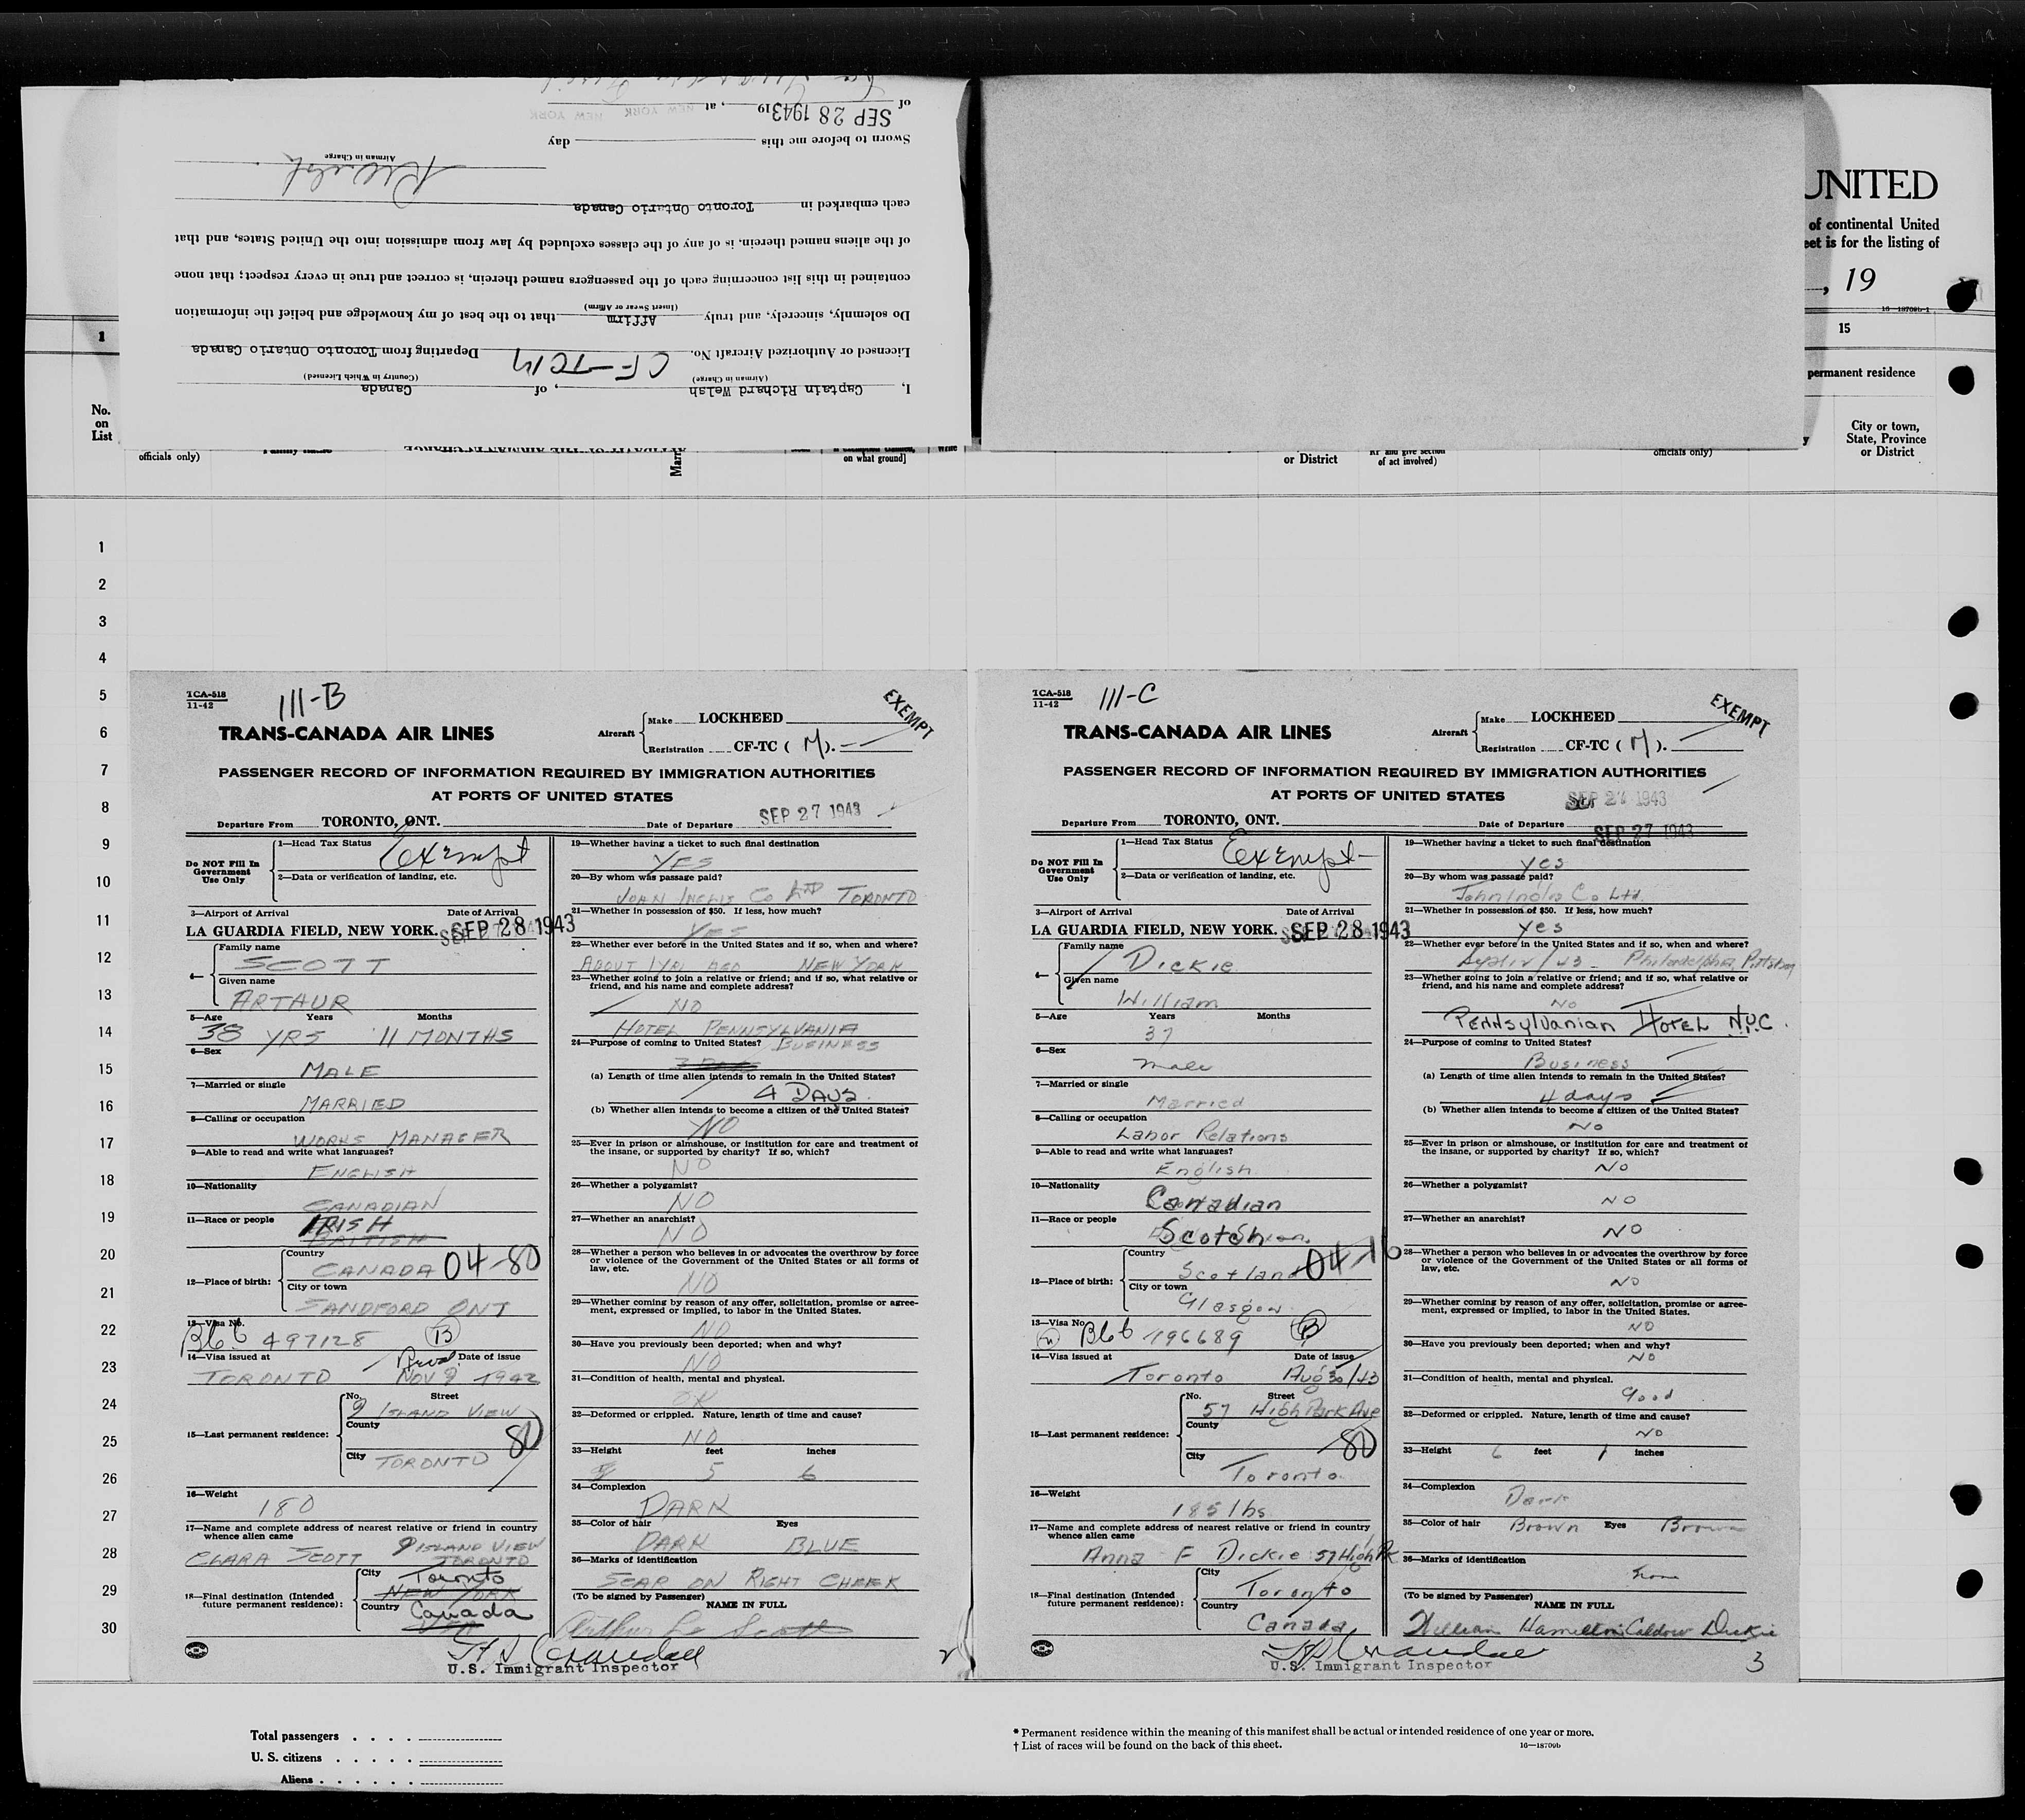 of SEP 28 1943 19 , at NEW YORK NEW YORK
Sworn to before me this day
Airman in Charge
each embarked in Toronto Ontario Canada
of the aliens named therein, is of any of the classes excluded by law from admission into the United States, and that
contained in this list concerning each of the passengers named therein, is correct and true in every respect; that none
(Insert Swear or Affirm)
Do solemnly, sincerely, and truly Affirm that to the best of my knowledge and belief the information
Licensed or Authorized Aircraft No. CF-TCM Departing from Toronto Ontario Canada
(Airman in Charge) (Country in Which Licensed)
I, Captain Richard Welsh , of Canada
UNITED
of continental United
eet is for the listing of
, 19
16—18709b-1
1
15
permanent residence
No.
on
List
City or town,
State, Province
or District
officials only)
on what ground]
or District
of act involved)
officials only)
1
2
3
4
5
6
7
8
9
10
11
12
13
14
15
16
17
18
19
20
21
22
23
24
25
26
27
28
29
30
TCA-518
11-42
111-B
EXEMPT
TRANS-CANADA AIR LINES
Aircraft
Make LOCKHEED
Registration CF-TC ( M ).
PASSENGER RECORD OF INFORMATION REQUIRED BY IMMIGRATION AUTHORITIES
AT PORTS OF UNITED STATES
Departure From TORONTO, ONT. Date of Departure SEP 27 1943
Do NOT Fill In
Government
Use Only
1—Head Tax Status Exempt
2—Data or verification of landing, etc.
3—Airport of Arrival Date of Arrival
LA GUARDIA FIELD, NEW YORK. SEP 28 1943
4—
Family name
SCOTT
Given name
ARTHUR
5—Age Years Months
38 YRS 11 MONTHS
6—Sex
MALE
7—Married or single
MARRIED
8—Calling or occupation
WORKS MANAGER
9—Able to read and write what languages?
ENGLISH
10—Nationality
CANADIAN
11—Race or people IRISH
BRITISH
12—Place of birth:
Country
CANADA 04-80
City or town
SANDFORD ONT
13—Visa No.
B6b 497128 B
14—Visa issued at Date of issue
TORONTO NOV 9 1942
15—Last permanent residence:
No. Street
9 ISLAND VIEW
County
80
City TORONTO
16—Weight
180
17—Name and complete address of nearest relative or friend in country
whence alien came
CLARA SCOTT 9 ISLAND VIEW
TORONTO
18—Final destination (Intended
future permanent residence):
City Toronto
NEW YORK
Country Canada
USA
19—Whether having a ticket to such final destination
YES
20—By whom was passage paid?
JOHN INGLIS CO LTD TORONTO
21—Whether in possession of $50. If less, how much?
YES
22—Whether ever before in the United States and if so, when and where?
ABOUT 1 YR AGO NEW YORK
23—Whether going to join a relative or friend; and if so, what relative or
friend, and his name and complete address?
NO
HOTEL PENNSYLVANIA
24—Purpose of coming to United States? BUSINESS
(a) Length of time alien intends to remain in the United States?
4 DAYS.
(b) Whether alien intends to become a citizen of the United States?
NO
25—Ever in prison or almshouse, or institution for care and treatment of
the insane, or supported by charity? If so, which?
NO
26—Whether a polygamist?
NO
27—Whether an anarchist?
NO
28—Whether a person who believes in or advocates the overthrow by force
or violence of the Government of the United States or all forms of
law, etc.
NO
29—Whether coming by reason of any offer, solicitation, promise or agree-
ment, expressed or implied, to labor in the United States.
NO
30—Have you previously been deported; when and why?
NO
31—Condition of health, mental and physical.
OK
32—Deformed or crippled. Nature, length of time and cause?
NO
33—Height feet inches
5 6
34—Complexion
DARK
35—Color of hair Eyes
DARK BLUE
36—Marks of identification
SCAR ON RIGHT CHEEK
(To be signed by Passenger)
NAME IN FULL
Arthur L. Scott
U.S. Immigrant Inspector
2
TCA-518
11-42
111-C
EXEMPT
TRANS-CANADA AIR LINES
Aircraft
Make LOCKHEED
Registration CF-TC ( M ).
PASSENGER RECORD OF INFORMATION REQUIRED BY IMMIGRATION AUTHORITIES
AT PORTS OF UNITED STATES
SEP 27 1943
Departure From TORONTO, ONT. Date of Departure SEP 27 1943
Do NOT Fill In
Government
Use Only
1—Head Tax Status Exempt
2—Data or verification of landing, etc.
3—Airport of Arrival Date of Arrival
LA GUARDIA FIELD, NEW YORK. SEP 28 1943
4—
Family name
Dickie
Given name
William
5—Age Years Months
37
6—Sex
male
7—Married or single
Married
8—Calling or occupation
Labor Relations
9—Able to read and write what languages?
English
10—Nationality
Canadian
11—Race or people
Scotch
12—Place of birth:
Country
Scotland 04-16
City or town
Glasgow
13—Visa No.
B6b 196689 B
14—Visa issued at Date of issue
Toronto Aug 30/43
15—Last permanent residence:
No. Street
57 High Park Ave
County
80
City
Toronto
16—Weight
185 lbs
17—Name and complete address of nearest relative or friend in country
whence alien came
Anna F Dickie 57 High Pk
18—Final destination (Intended
future permanent residence):
City
Toronto
Country
Canada
19—Whether having a ticket to such final destination
yes
20—By whom was passage paid?
John Inglis Co Ltd.
21—Whether in possession of $50. If less, how much?
yes
22—Whether ever before in the United States and if so, when and where?
/43 - Philadelphia, Pittsburg
23—Whether going to join a relative or friend; and if so, what relative or
friend, and his name and complete address?
No
Pennsylvanian Hotel N.Y.C.
24—Purpose of coming to United States?
Business
(a) Length of time alien intends to remain in the United States?
4 days
(b) Whether alien intends to become a citizen of the United States?
No
25—Ever in prison or almshouse, or institution for care and treatment of
the insane, or supported by charity? If so, which?
No
26—Whether a polygamist?
NO
27—Whether an anarchist?
NO
28—Whether a person who believes in or advocates the overthrow by force
or violence of the Government of the United States or all forms of
law, etc.
NO
29—Whether coming by reason of any offer, solicitation, promise or agree-
ment, expressed or implied, to labor in the United States.
NO
30—Have you previously been deported; when and why?
No
31—Condition of health, mental and physical.
Good
32—Deformed or crippled. Nature, length of time and cause?
No
33—Height 6 feet 1 inches
34—Complexion
Dark
35—Color of hair Brown Eyes Brown
36—Marks of identification
(To be signed by Passenger)
NAME IN FULL
William Hamilton Caldow Dickie
U.S. Immigrant Inspector
3
Total passengers . . . .
U. S. citizens . . . . .
Aliens . . . . . .
* Permanent residence within the meaning of this manifest shall be actual or intended residence of one year or more.
† List of races will be found on the back of this sheet. 16—18709b